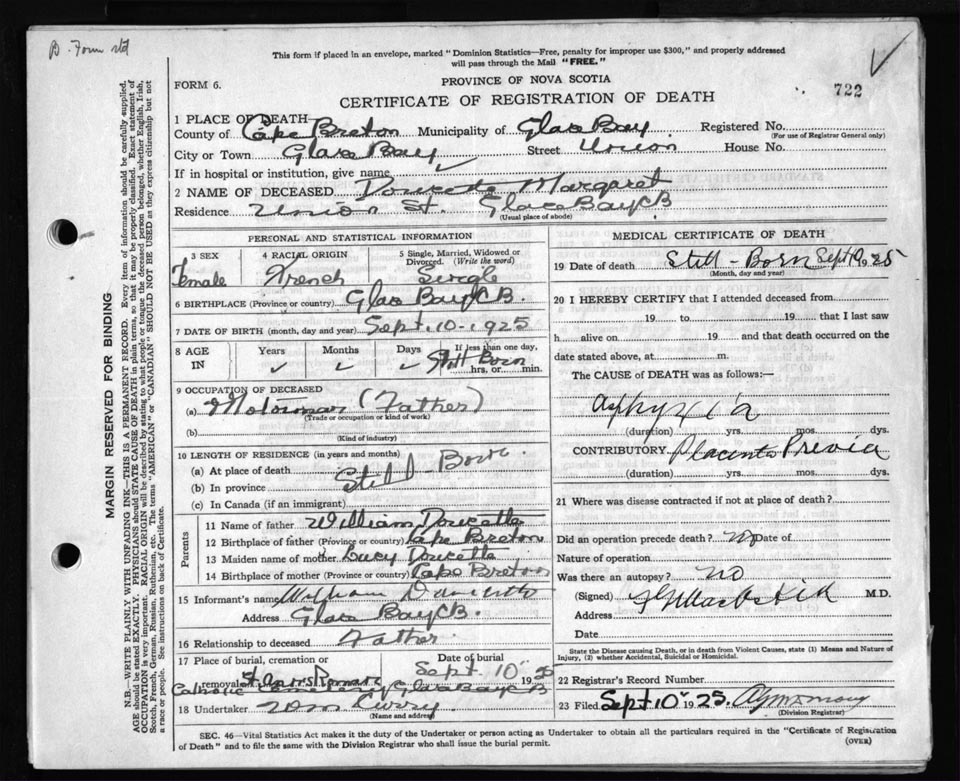 B. Form
This form if placed in an envelope, marked "Dominion Statistics—Free, penalty for improper use $300," and properly addressed
will pass through the Mail "FREE."
FORM 6.
PROVINCE OF NOVA SCOTIA
722
CERTIFICATE OF REGISTRATION OF DEATH
1 PLACE OF DEATH
County of Cape Breton Municipality of Glace Bay Registered No.
(For use of Registrar General only)
City or Town Glace Bay Street Union House No.
If in hospital or institution, give name
2 NAME OF DECEASED Doucette Margaret
Residence Union St. Glace Bay CB
(Usual place of abode)
PERSONAL AND STATISTICAL INFORMATION
3 SEX 4 RACIAL ORIGIN 5 Single, Married, Widowed or
Divorced. (Write the word)
Female French Single
6 BIRTHPLACE (Province or country) Glace Bay C B.
7 DATE OF BIRTH (month, day and year) Sept. 10-1925
8 AGE IN Years Months Days If less than one day,
Still Born
hrs. or min.
9 OCCUPATION OF DECEASED
(a) Motorman (Father)
(Trade or occupation or kind of work)
(b)
(Kind of industry)
10 LENGTH OF RESIDENCE (in years and months)
(a) At place of death
(b) In province Still-Born
(c) In Canada (if an immigrant)
Parents
11 Name of father William Doucette
12 Birthplace of father (Province or country) Cape Breton
13 Maiden name of mother Lucy Doucette
14 Birthplace of mother (Province or country) Cape Breton
15 Informant's name William Doucette
Address Glace Bay C B.
16 Relationship to deceased Father
17 Place of burial, cremation or Date of burial
removal St. Ann's Roman Sept. 10 1925
Catholic Cemetery Glace Bay C B
18 Undertaker Wm Curry
(Name and address)
MEDICAL CERTIFICATE OF DEATH
19 Date of death Still-Born Sept 10 1925
(Month, day and year)
20 I HEREBY CERTIFY that I attended deceased from
19 to 19 that I last saw
h alive on 19 and that death occurred on the
date stated above, at m.
The CAUSE of DEATH was as follows:—
Asphyxia
(duration) yrs. mos. dys.
CONTRIBUTORY Placenta Previa
(duration) yrs. mos. dys.
21 Where was disease contracted if not at place of death?
Did an operation precede death? No Date of
Nature of operation
Was there an autopsy? no
(Signed) M.D.
Address
Date
State the Disease causing Death, or in death from Violent Causes, state (1) Means and Nature of
Injury, (2) whether Accidental, Suicidal or Homicidal.
22 Registrar's Record Number
23 Filed Sept 10 1925.
(Division Registrar)
SEC. 46—Vital Statistics Act makes it the duty of the Undertaker or person acting as Undertaker to obtain all the particulars required in the "Certificate of Registration
of Death" and to file the same with the Division Registrar who shall issue the burial permit.
(OVER)
MARGIN RESERVED FOR BINDING
N.B.—WRITE PLAINLY WITH UNFADING INK—THIS IS A PERMANENT RECORD. Every item of information should be carefully supplied.
AGE should be stated EXACTLY. PHYSICIANS should STATE CAUSE OF DEATH in plain terms, so that it may be properly classified. Exact statement of
OCCUPATION is very important. RACIAL ORIGIN will be described by stating to what people or tongue the deceased person belonged, whether English, Irish,
Scotch, French, German, Russian, Ruthenian, etc. The terms "AMERICAN" or "CANADIAN" SHOULD NOT BE USED as they express citizenship but not
a race or people. See instructions on back of Certificate.